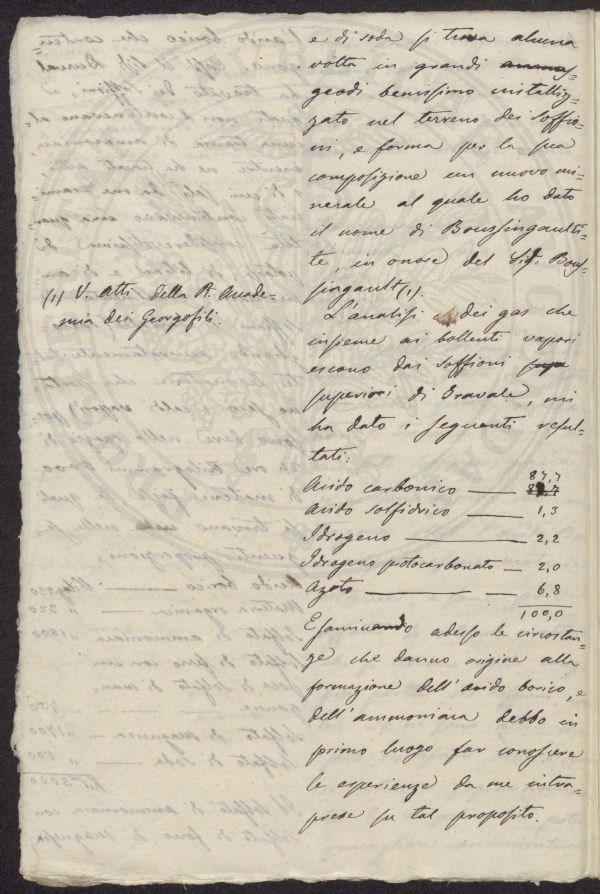 e di soda si trova alcuna
volta in grandi
geodi benissimo cristalliz-
zato nel terreno dei soffio-
ni, e forma per la sua
composizione un nuovo mi-
nerale al quale ho dato
il nome di Boussingaulti-
te, in onore del Sig. Bous-
singault (1).
(1) V. Atti della R. Accade-
mia dei Georgofili.
L'analisi dei gas che
insieme ai bollenti vapori
escono dai soffioni
superiori di Travale, mi
ha dato i seguenti resul-
tati:
Acido carbonico — 87,7
Acido solfidrico — 1,3
Idrogeno — 2,2
Idrogeno protocarbonato — 2,0
Azoto — 6,8
100,0
Esaminando adesso le circostan-
ze che danno origine alla
formazione dell'acido borico, e
dell'ammoniaca debbo in
primo luogo far conoscere
le esperienze da me intra-
prese su tal proposito.